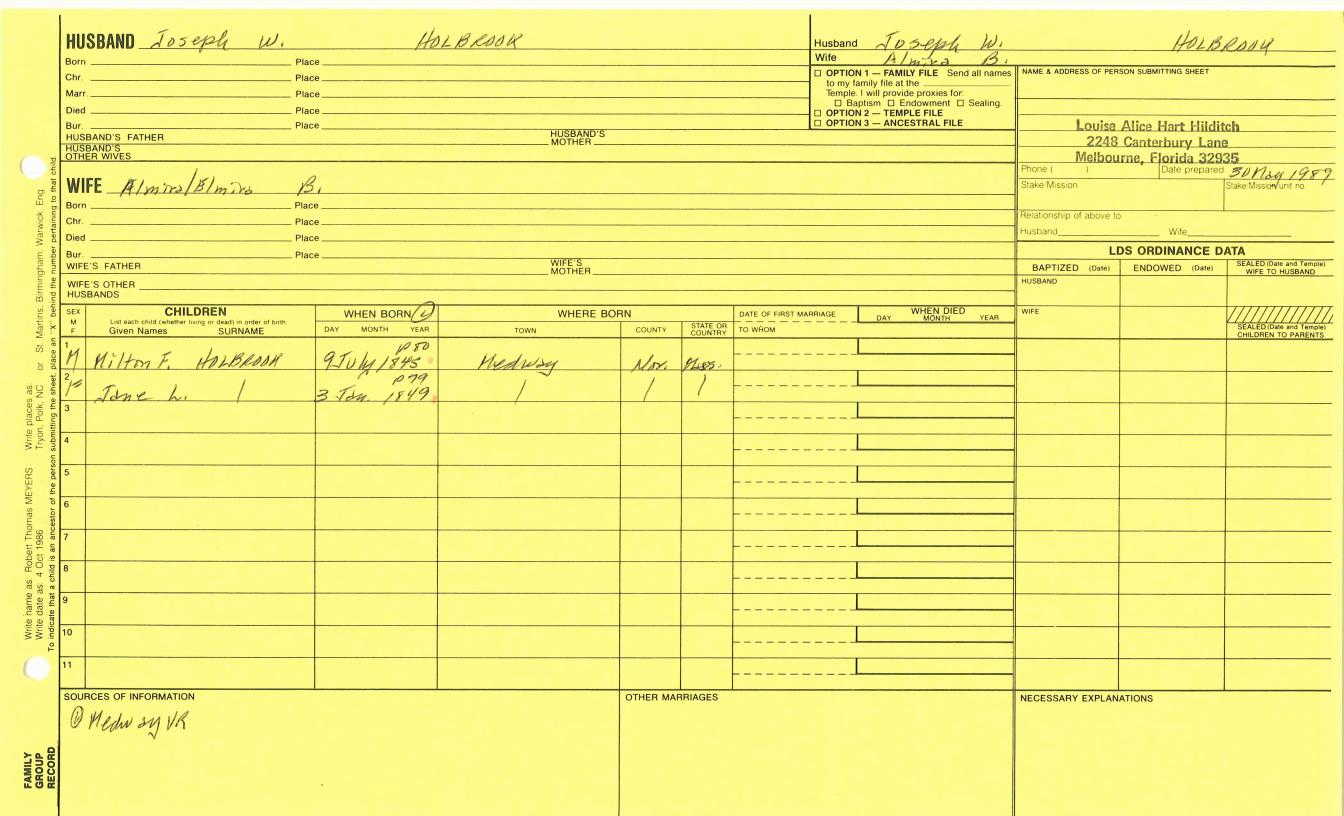 HUSBAND Joseph W. HOLBROOK
Born Place
Chr. Place
Marr. Place
Died Place
Bur. Place
HUSBAND'S FATHER HUSBAND'S MOTHER
HUSBAND'S OTHER WIVES
Husband Joseph W. HOLBROOK
Wife Almira B.
☐ OPTION 1 — FAMILY FILE Send all names
to my family file at the
Temple. I will provide proxies for:
☐ Baptism ☐ Endowment ☐ Sealing.
☐ OPTION 2 — TEMPLE FILE
☐ OPTION 3 — ANCESTRAL FILE
NAME & ADDRESS OF PERSON SUBMITTING SHEET
Louise Alice Hart Hilditch
2248 Canterbury Lane
Melbourne, Florida 32935
Phone ( ) Date prepared 30 May 1987
Stake Mission Stake Mission unit no.
Relationship of above to
Husband Wife
WIFE Almira/Elmira B.
Born Place
Chr. Place
Died Place
Bur. Place
WIFE'S FATHER WIFE'S MOTHER
WIFE'S OTHER HUSBANDS
LDS ORDINANCE DATA
BAPTIZED (Date) ENDOWED (Date) SEALED (Date and Temple) WIFE TO HUSBAND
HUSBAND
WIFE
SEALED (Date and Temple) CHILDREN TO PARENTS
SEX M F
CHILDREN
List each child (whether living or dead) in order of birth.
Given Names SURNAME
WHEN BORN
DAY MONTH YEAR
WHERE BORN
TOWN COUNTY STATE OR COUNTRY
DATE OF FIRST MARRIAGE
TO WHOM
WHEN DIED
DAY MONTH YEAR
p 80
1 M Milton F. HOLBROOK 9 July 1845 Medway Nor. Mas.
p 79
2 F Jane L. 3 Jan. 1849
3
4
5
6
7
8
9
10
11
SOURCES OF INFORMATION
① Medway VR
OTHER MARRIAGES
NECESSARY EXPLANATIONS
FAMILY GROUP RECORD
Write name as: Robert Thomas MEYERS Write places as:
Write date as: 4 Oct 1986 Tryon, Polk, NC or St. Martins, Birmingham, Warwick, Eng.
To indicate that a child is an ancestor of the person submitting the sheet, place an "X" behind the number pertaining to that child.